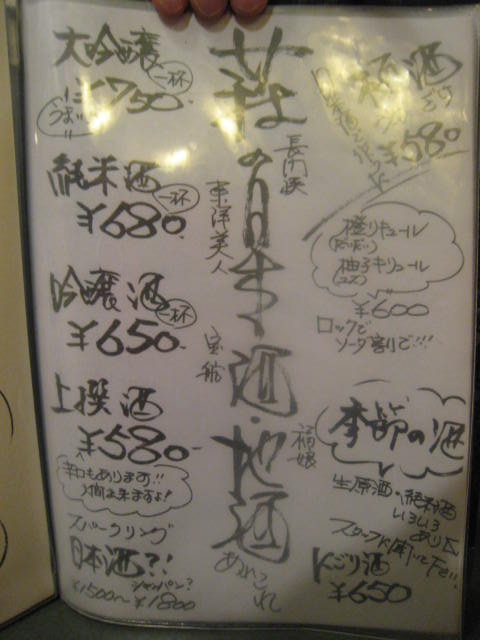 酒
¥580
橙リキュール
(だいだい)
柚子リキュール
(ユズ)
¥600
ロックで
ソーダ割りで!!!
季節の酒
生原酒、純米酒
いろいろ
あり〼
スタッフに聞いて下さい!!
にごり酒
¥650
萩の
酒・地酒
あれこれ
長門峡
東洋美人
宝船
福娘
大吟醸
一杯
¥750
純米酒
一杯
¥680
吟醸酒
一杯
¥650
上撰酒
¥580
辛口もあります!!
スパークリング
日本酒?!
シャンパン?
¥1500〜¥1800